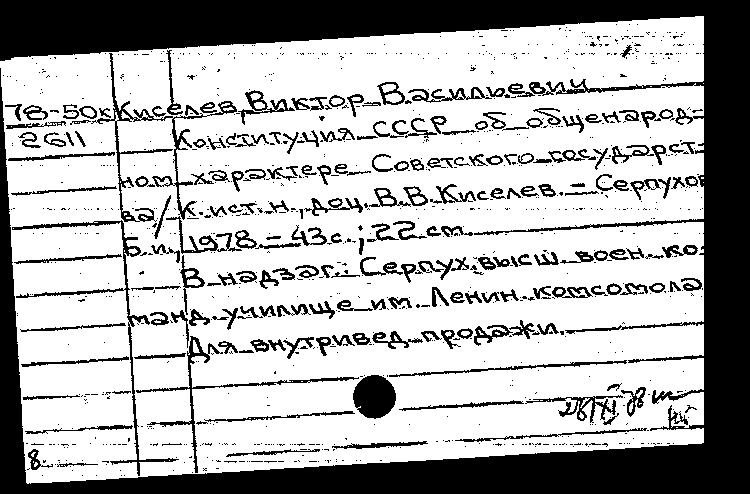 78-50к Киселев, Виктор Васильевич
2611 Конституция СССР об общенарод-
ном характере Советского государст-
ва / К.ист.н., доц. В.В. Киселев. - Серпухов
Б.и., 1978. - 43с.; 22 см.
В надзаг.: Серпух. высш. воен. ко-
манд. училище им. Ленин. комсомола
Для внутривед. продажи.
8.